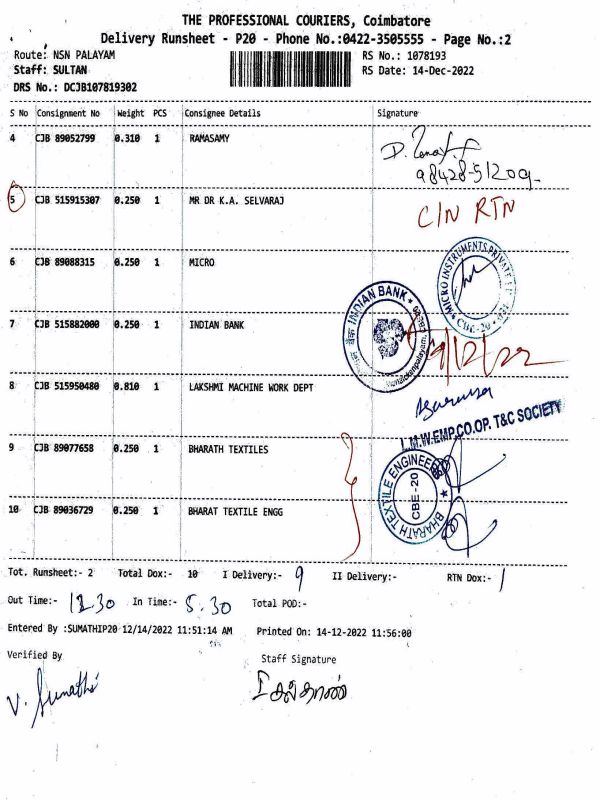 THE PROFESSIONAL COURIERS, Coimbatore
Delivery Runsheet - P20 - Phone No.:0422-3505555 - Page No.:2
Route: NSN PALAYAM RS No.: 1078193
Staff: SULTAN RS Date: 14-Dec-2022
DRS No.: DCJB107819302
S No Consignment No Weight PCS Consignee Details Signature
4 CJB 89052799 0.310 1 RAMASAMY
98428-51209
5 CJB 515915307 0.250 1 MR DR K.A. SELVARAJ C/N RTN
6 CJB 89088315 0.250 1 MICRO
MICRO INSTRUMENTS PRIVATE CBE-20
7 CJB 515882000 0.250 1 INDIAN BANK
INDIAN BANK
/12/22
8 CJB 515950480 0.810 1 LAKSHMI MACHINE WORK DEPT
L.M.W.EMP.CO.OP. T&C SOCIETY
9 CJB 89077658 0.250 1 BHARATH TEXTILES
BHARATH TEXTILE ENGINEERS CBE-20
10 CJB 89036729 0.250 1 BHARAT TEXTILE ENGG
Tot. Runsheet:- 2 Total Dox:- 10 I Delivery:- 9 II Delivery:- RTN Dox:- 1
Out Time:- 12.30 In Time:- 5.30 Total POD:-
Entered By :SUMATHIP20 12/14/2022 11:51:14 AM Printed On: 14-12-2022 11:56:00
Verified By Staff Signature
V. Sumathi